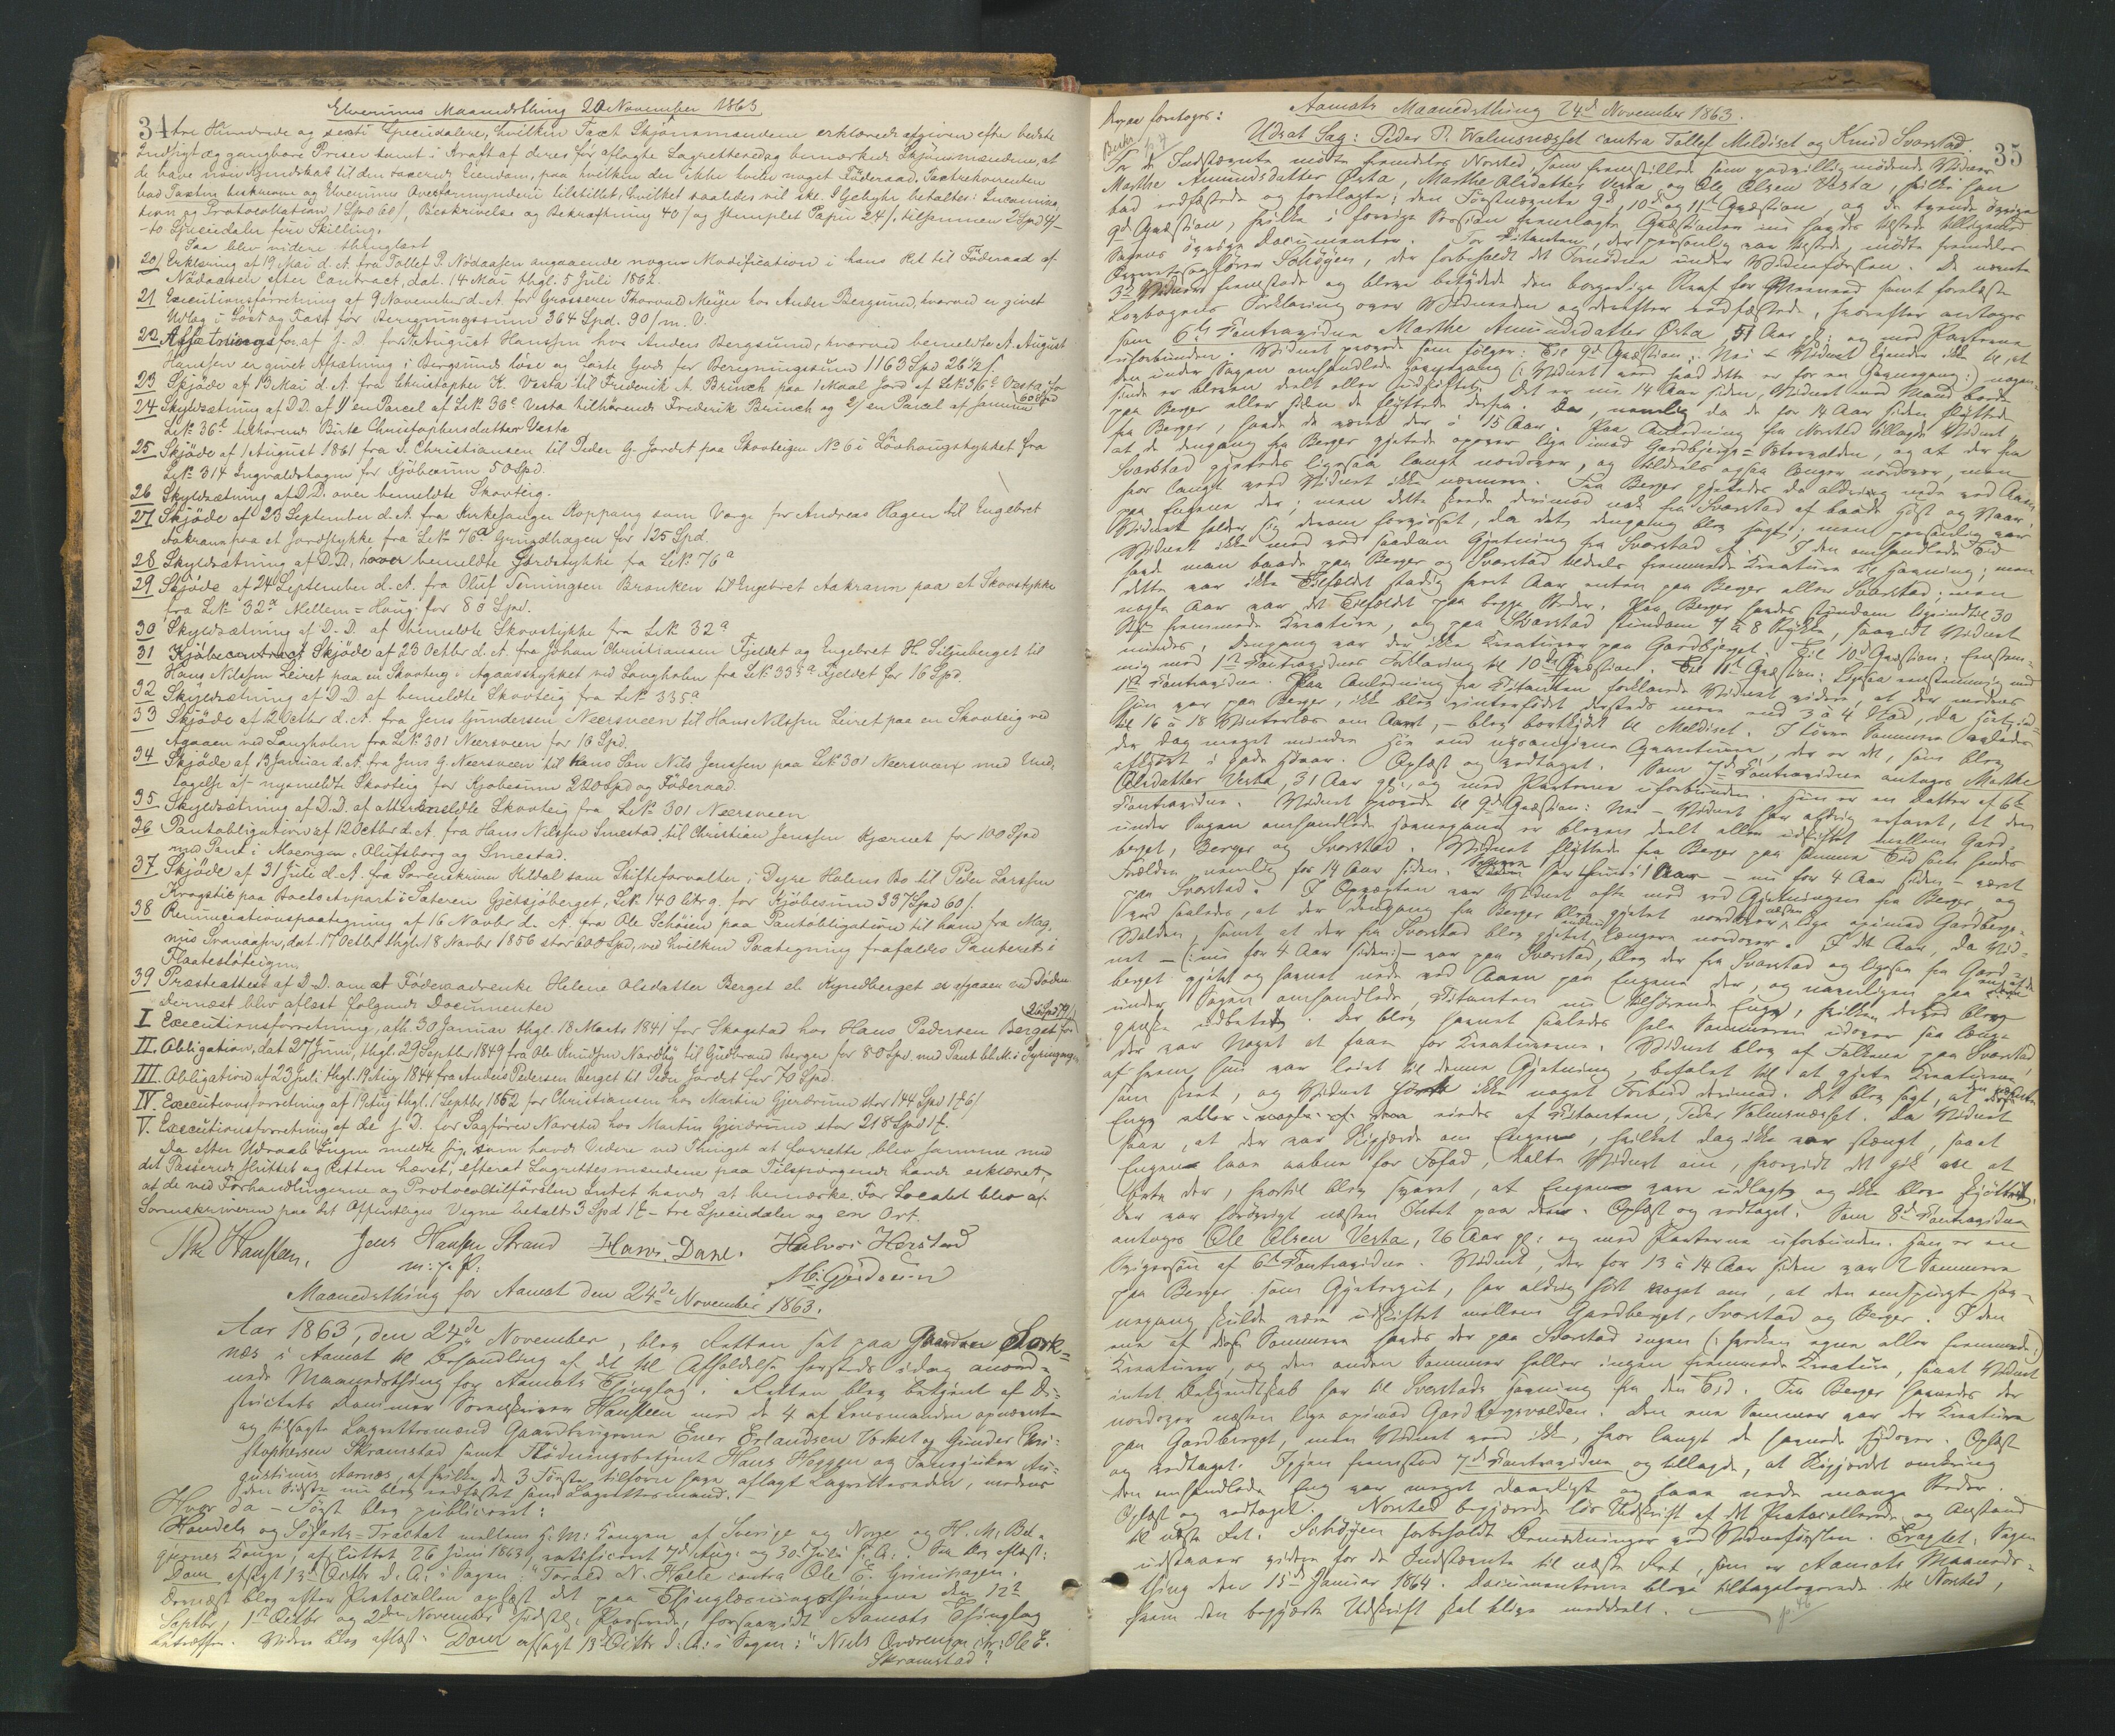 34
Elverums Maanedsthing 20 November 1863
tre Hundrede og sexti Speciedaler, hvilken Taxt Skjønsmændene erklærede afgiven efter bedste
Indsigt og gangbare Priser samt i Kraft af deres før aflagte Lagrettesed og bemærkede Skjønsmændene, at
de have nøie Kjendskab til den taxerede Eiendom, paa hvilken der ikke hviler noget Föderaad. Taxtrekvirenten
bad Taxten beskreven og Elverums Overformynderi tilstillet, hvilket saaledes vil ske. I Gebyhr betaltes: Incamina-
tion og Protocollation 1 Spd 60 /, Beskrivelse og Bekræftning 40 / og stemplet Papir 24 /, tilsammen 2 Spd 4 / -
to Speciedaler fire Skilling.
Saa blev videre thinglæst
20 Erklæring af 19 Mai d. A. fra Tollef P. Nödaasen angaaende nogen Modification i hans Ret til Föderaad af
Nödaasen efter Contract, dat. 14 Mai thgl. 5 Juli 1862.
21 Executionsforretning af 9 November d. A. for Grosserer Thorvald Meijer hos Anders Bergsund, hvorved er givet
Udlæg i Löst og Fast for Beregningssum 364 Spd. 90 / m. v.
22 Afsætningsfor. af J. D. for August Hanssen hos Anders Bergsund, hvorved bemeldte A. August
Hanssen er givet Afsætning i Bergsunds löse og faste Gods for Beregningssum 1163 Spd 26 1/2 /.
23 Skjöde af 13 Mai d. A. fra Christopher K. Vesta til Frederik A. Brinck paa 1 Maal Jord af L.N. 36 c Vesta for 60 Spd
24 Skyldsætning af D. D. af 1/ en Parcel af L.N. 36 c Vesta tilhörende Frederik Brinck og 2/ en Parcel af samme
L.N. 36 c tilhörende Birte Christophersdatter Vesta
25 Skjöde af 1 August 1861 fra S. Christiansen til Peder G. Jordet paa Skovteigen No 6 i Lövhaugstykket fra
L.N. 314 Ingvaldshagen for Kjöbesum 50 Spd.
26 Skyldsætning af D. D. over bemeldte Skovteig.
27 Skjöde af 23 September d. A. fra Kirkesanger Koppang som Værge for Andreas Hagen til Engebret
Aakrann paa et Jordstykke fra L.N. 76 a Grindhagen for 125 Spd.
28 Skyldsætning af D. D. over bemeldte Jordstykke fra L.N. 76 a
29 Skjöde af 24 September d. A. fra Oluf Simingsen Brænken til Engebret Aakrann paa et Skovstykke
fra L.N. 32 a Mellem-Haug for 80 Spd.
30 Skyldsætning af D. D. af bemeldte Skovstykke fra L.N. 32 a
31 Skjöde af 23 Octbr d. A. fra Johan Christiansen Fjeldet og Engebret H. Siljuberget til
Hans Nilssen Leiret paa en Skovteig i Agaasstykket ved Langholen fra L.N. 335 a Fjeldet for 16 Spd.
32 Skyldsætning af D. D. af bemeldte Skovteig fra L.N. 335 a
33 Skjöde af 12 Octbr d. A. fra Jens Gundersen Neersveen til Hans Nilssen Leiret paa en Skovteig ved
Agaaen ved Langholen fra L.N. 301 Neersveen for 16 Spd.
34 Skjöde af 13 Januar d. A. fra Jens G. Neersveen til hans Sön Nils Jenssen paa L.N. 301 Neersveen med Und-
tagelse af nysmeldte Skovteig for Kjöbesum 220 Spd og Föderaad.
35 Skyldsætning af D. D. af attermeldte Skovteig fra L.N. 301 Neersveen
36 Pantobligation af 12 Octbr d. A. fra Hans Nilssen Smestad til Christian Jenssen Kjernet for 100 Spd
med Pant i Moengen, Olufsborg og Smestad.
37 Skjöde af 31 Juli d. A. fra Sorenskriver Kildal som Skifteforvalter i Dyre Halens Bo til Peder Larssen
Krogstie paa Boets Anpart i Sæteren Gjetsjöberget, L.N. 140 litr a. for Kjöbesum 337 Spd 60 /.
38 Renunciationspaategning af 16 Novbr d. A. fra Ole Schöien paa Pantobligation til ham fra Mag-
nus Svanaasen, dat. 17 Octbr thgl. 18 Novbr 1856 stor 600 Spd, ved hvilken Paategning frafaldes Panteret i
Flaatestöteigen
39 Præsteattest af D. D. om at Föderaadsenke Helene Olsdatter Berget el. Kynedberget er afgaaet ved Döden
Dernæst blev aflæst følgende Documenter
I Executionsforretning, afh. 30 Januar thgl. 18 Marts 1841 for Skogstad hos Hans Pedersen Berget for
II. Obligation, dat. 27 Juni, thgl. 29 Septbr 1849 fra Ole Knudsen Nordby til Gudbrand Berger for 80 Spd. med Pant bl. A. i
III. Obligation af 23 Juli thgl. 19 Aug 1844 fra Anders Pedersen Berget til Peder Jordet for 70 Spd.
IV. Executionsforretning af 19 Aug thgl. 1 Septbr 1852 for Christiansen hos Martin Gjerdrum stor 144 Spd 1 # 6 /
V. Executionsforretning af de j. D. for Sagförer Norsted hos Martin Gjerdrum stor 218 Spd 1 #.
Da efter Udraab Ingen meldte sig, som havde Videre ved Thinget at forrette, blev samme med
det Passerede sluttet og Retten hævet, efterat Lagrettesmændene paa Tilspørgende havde erklæret,
at de ved Forhandlingerne og Protocoltilførslen Intet havde at bemærke. For Localet blev af
Sorenskriveren paa det Offentliges Vegne betalt 3 Spd 1 # - tre Speciedaler og en Ort.
Hansteen. Jens Hanssen Strand Hans Dane. Halvor Herstad
m. f. P. M. Gjerdrum
Maanedsthing for Aamot den 24de November 1863.
Aar 1863, den 24de November, blev Retten sat paa Gaarden Sork-
næs i Aamot til Behandling af det til Afholdelse sammesteds idag anord-
nede Maanedsthing for Aamots Thinglag. Retten blev betjent af Di-
strictets Dommer Sorenskriver Hansteen med de 4 af Lensmanden opnævnte
og tilsagte Lagrettesmænd Gaardbrugerne Ener Erlandsen Værket og Gunder Chri-
stophersen Skramstad samt Flödningsbetjent Hans Heggen og Au-
gustinus Aarnæs, af hvilke de 3 Første tilforn have aflagt Lagretteseden, medens
den Sidste nu blev edfæstet som Lagrettesmand.
Hvor da - Først blev publiceret:
Handels og Søfarts-Tractat mellem H. M. Kongen af Sverige og Norge og H. M. Bel-
giernes Konge, afsluttet 26 Juni 1863, ratificeret 7de Aug. og 30 Juli s. A.: Saa blev aflæst:
Dom afsagt 13de Octbr d. A. i Sagen: "Tored N. Holte contra Ole E. Grinihagen.
Dernæst blev efter Protocollen oplæst det paa Thinglæsningsthingene den 12te
Septbr, 1ste Octbr og 2den November sidstl. Passerede, forsaavidt Aamots Thinglag
betræffer. Videre blev aflæst. Dom afsagt 13de Octbr d. A. i Sagen: "Niels Ovdrengen ctr. Ole E.
Skramstad".
35
Aamots Maanedsthing 24de November 1863.
Derpaa foretoges:
Udsat Sag: Peder P. Walmsnæsset contra Tollef Meldiset og Knud Svarstad.
For de Indstævnte mødte fremdeles Norsted, som fremstillede som godvillig mødende Vidner
Marthe Amundsdatter Østa, Marthe Olsdatter Vesta og Ole Olsen Vesta, hvilke han
bad edfæstede og forelagte: den Førstnævnte 9de, 10de og 11te Quæstion, og de tvende øvrige
9de Quæstion, hvilke i forrige Session fremlagte Quæstioner nu havdes tilstede tilligemed
Sagens øvrige Documenter. For Citanten, der personlig var tilstede, mødte fremdeles
Overretssagfører Schøyen, der forbeholdt det Fornødne under Vidneførslen. De nævnte
3de Vidner fremstode og bleve betydede den borgerlige Straf for Meeneed samt forelæste
Lovbogens Forklaring over Vidneeden og derefter edfæstede, hvorefter antoges
som 6te Contravidne Marthe Amundsdatter Østa, 51 Aar gl: og med Parterne
uforbunden. Vidnet provede som følger: Til 9de Quæstion: Nei - Vidnet kjender ikke til, at
den under Sagen omhandlede Havnegang (: Vidnet veed hvad dette er for en Havnegang:) nogen-
sinde er bleven deelt eller udskiftet. Det er nu 14 Aar siden, Vidnet med Mand boede
paa Berger eller siden de flyttede derfra. Da, nemlig da de for 14 Aar siden flyttede
fra Berger, havde de været der i 15 Aar. Paa Anledning fra Norsted tillagde Vidnet,
at de dengang fra Berger gjetede opover lige imod Gardbjergs-Sætervolden, og at der fra
Svarstad gjetedes ligesaa langt nordover, og tildeels ogsaa længer nordover, men
hvor langt veed Vidnet ikke nærmere. Fra Berger gjetedes da aldrig nede ved Aaen
paa Engene der; men dette skeede derimod nok fra Svarstad af baade Høst og Vaar.
Vidnet holder sig derom forvisset, da det dengang blev sagt; men personlig var
Vidnet ikke med ved saadan Gjetning fra Svarstad af. I den omhandlede Tid
havde man baade paa Berger og Svarstad tildeels fremmede Kreature til Havning; men
dette var ikke Tilfældet stadig hvert Aar enten paa Berger eller Svarstad; men
nogle Aar var det Tilfældet paa begge Steder. Paa Berger havdes stundom ligeindtil 30
Stkr fremmede Kreature, og paa Svarstad stundom 7 à 8 Stykker, saavidt Vidnet
mindes; dengang var der ikke Kreaturer paa Gardberget. Til 10de Quæstion: Eenstem-
mig med 1ste Contravidnes Forklaring til 10de Quæstion. Til 11te Quæstion: Ligesaa eenstemmig med
1ste Contravidne. Paa Anledning fra Citanten forklarede Vidnet videre, at der medens
hun var paa Berger, ikke blev vinterfødet dersteds mere end 3 à 4 Nød, da Høet, ind-
til 16 à 18 Vinterlæs om Aaret, - blev bortkjørt til Meldiset. I tørre Sommere avledes
der dog meget mindre Høe end nysangivne Quantum, der er det, som blev
afhøstet i gode Høaar. Oplæst og vedtaget. Som 7de Contravidne antoges Marthe
Olsdatter Vesta, 31 Aar gl:, og med Parterne uforbunden. Hun er en Datter af 6te
Contravidne. Vidnet provede til 9de Quæstion: Nei - Vidnet har aldrig erfaret, at den
under Sagen omhandlede Havnegang er bleven deelt eller udskiftet mellem Gard-
berget, Berger og Svarstad. Vidnet flyttede fra Berger paa samme Tid som hendes
Forældre, nemlig for 14 Aar siden. Senere har hun i 1 Aar - nu for 4 Aar siden - været
paa Svarstad. I Opvæxten var Vidnet ofte med ved Gjetningen fra Berger, og
veed saaledes, at der dengang fra Berger blev gjetet nordover næsten lige opimod Gardbergs-
Volden, samt at der fra Svarstad blev gjetet endnu længere nordover. I det Aar, da Vid-
net - (: nu for 4 Aar siden:) - var paa Svarstad, blev der fra Svarstad og ligesaa fra Gard-
berget gjetet og havnet nede ved Aaen paa Engene der, og navnligen paa
under Sagen omhandlede, Citanten nu tilhørende Enge, hvilken derved blev
ganske udbeitet. Der blev havnet saaledes hele Sommeren udover saa længe
der var Noget at faae for Kreaturene. Vidnet blev af Folkene paa Svarstad,
af hvem hun var leiet til denne Gjetning, befalet til at gjete Kreaturene
som skeet, og Vidnet hørte ikke noget Forbud derimod. Det blev sagt, at
Eng eiedes af Citanten, Peder Valmsnæsset. Da Vidnet
saae, at der var Skigjærde om Engen, hvilket dog ikke var stængt, saa at
Engen laae aaben for Fæfod, talte Vidnet om, hvorvidt det gik an at
beite der, hvortil blev svaret, at Engen var udlagt og ikke blev skjøttet.
Der var forøvrigt næsten Intet paa den. Oplæst og vedtaget. Som 8de Contravidne
antoges Ole Olsen Vesta, 26 Aar gl: og med Parterne uforbunden. Han er en
Svigersøn af 6te Contravidne. Vidnet, der for 13 à 14 Aar siden var 2 Sommere
paa Berger som Gjetergut, har aldrig hørt noget om, at den omspurgte Hav-
negang skulde være udskiftet mellem Gardberget, Svarstad og Berger. I den
ene af disse Sommere havdes der paa Svarstad ingen (: hverken egne eller fremmede:)
Kreaturer, og den anden Sommer heller ingen fremmede Kreature, saa at Vidnet
intet Bekjendtskab har til Svarstads Havning fra den Tid. Fra Berger havnedes der
nordover næsten lige opimod Gardbergsvolden. Den ene Sommer var der Kreature
paa Gardberget, men Vidnet veed ikke, hvor langt de havnede sydover. Oplæst
og vedtaget. Igjen fremstod 7de Contravidne og tillagde, at Skigjærdet omkring
den omhandlede Eng var meget daarligt og laae nede mange Steder.
Oplæst og vedtaget. Norsted begjærede løs Udskrift af det Protocollerede og Anstand
til næste Ret. Schøyen forbeholdt Bemærkninger ved Vidneførslen. Eragtet: Sagen
udstaaer videre for de Indstævnte til næste Ret, som er Aamots Maaneds-
thing den 15de Januar 1864. Documenterne bleve tilbageleverede til Norsted,
hvem den begjærte Udskrift skal blive meddeelt.